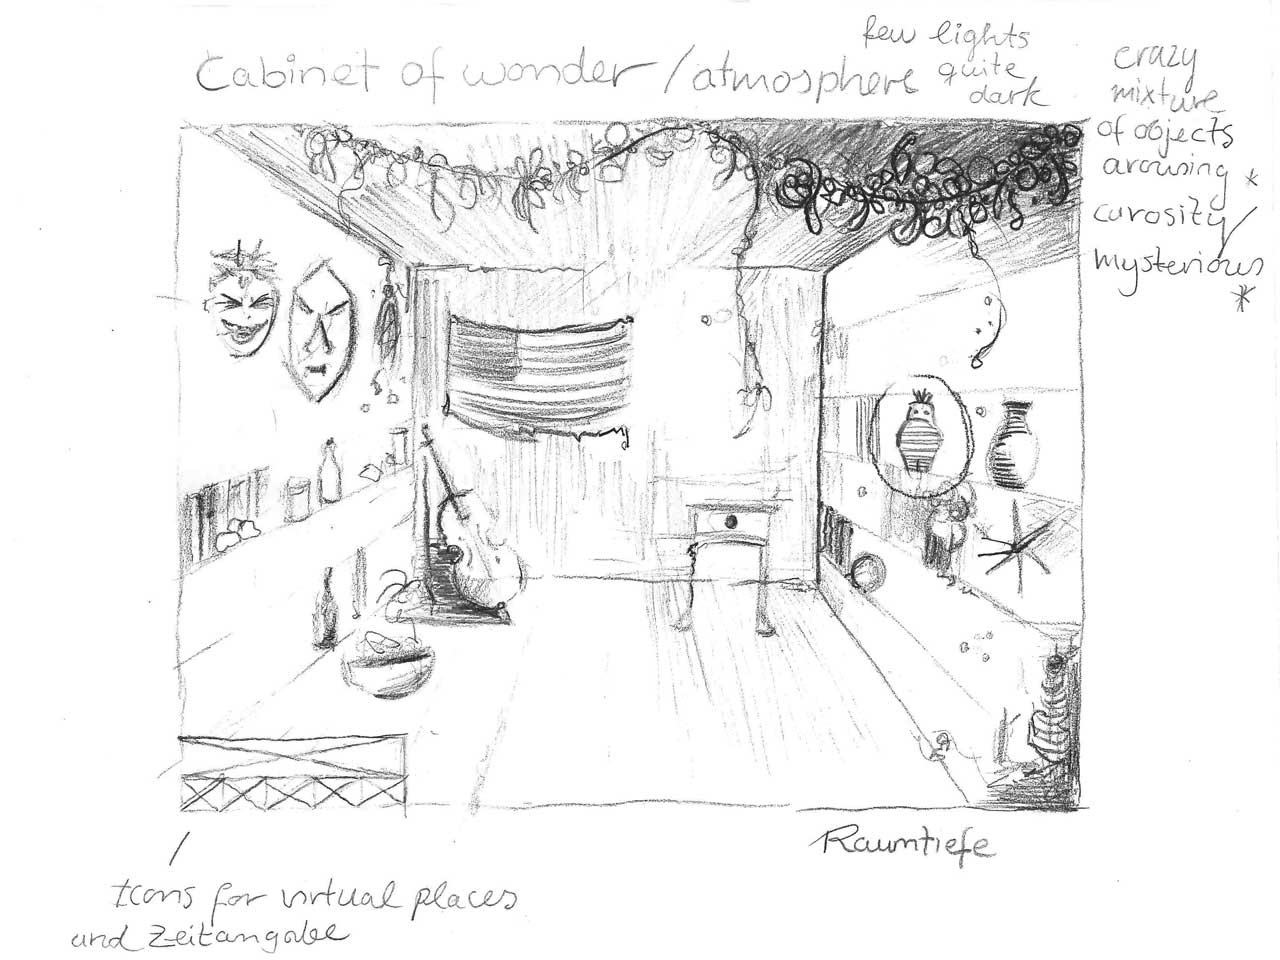 Cabinet of wonder / atmosphere
few lights
quite
dark
crazy
mixture
of objects
arousing *
curosity /
mysterious
*
Raumtiefe
Icons for virtual places
and Zeitangabe